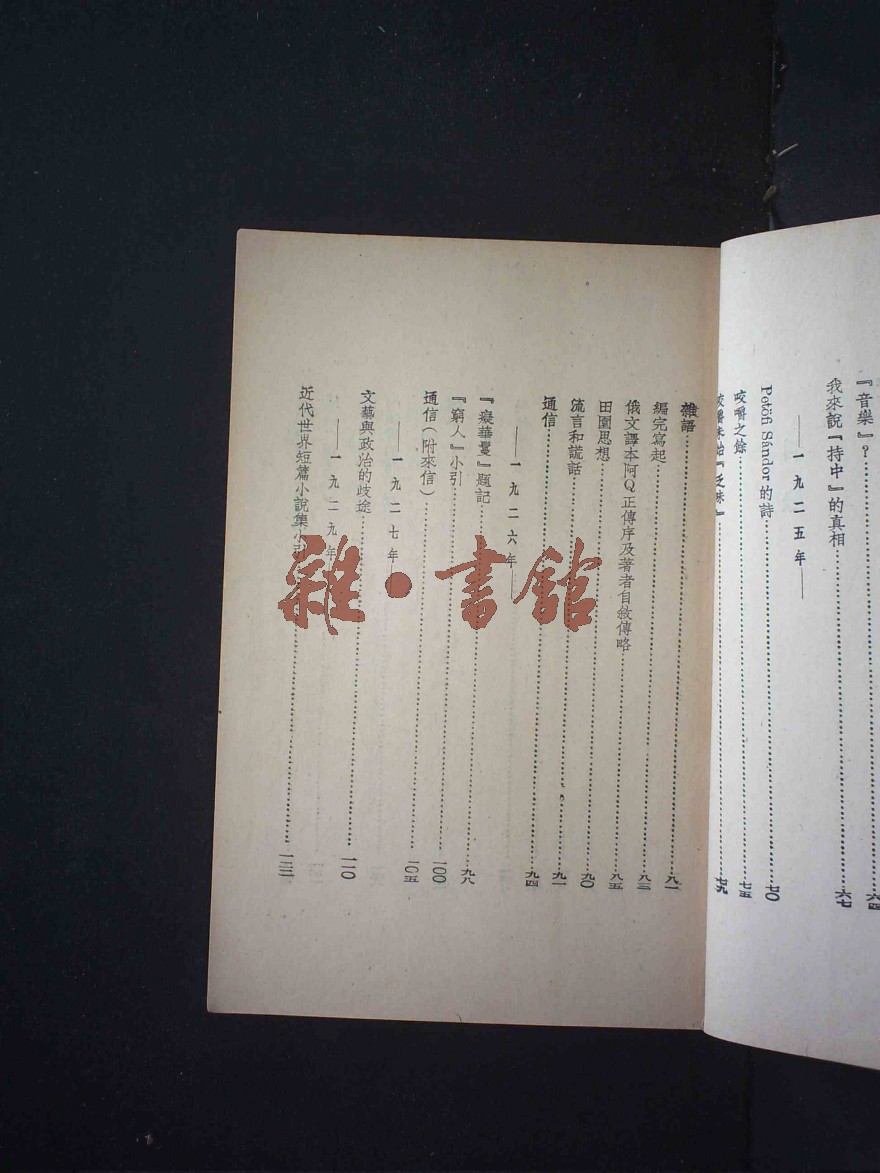 『音樂』？……六四
我來說『持中』的真相……六七
——一九二五年——
Petöfi Sándor 的詩……七〇
咬嚼之餘……七五
咬嚼未始『乏味』……七九
雜語……八一
編完寫起……八三
俄文譯本阿Q正傳序及著者自敘傳略……八五
田園思想……九〇
流言和謊話……九一
通信……九四
——一九二六年——
『癡華鬘』題記……九八
『窮人』小引……一〇〇
通信（附來信）……一〇五
——一九二七年——
文藝與政治的歧途……一一〇
——一九二九年
近代世界短篇小說集小引……
雜·書館